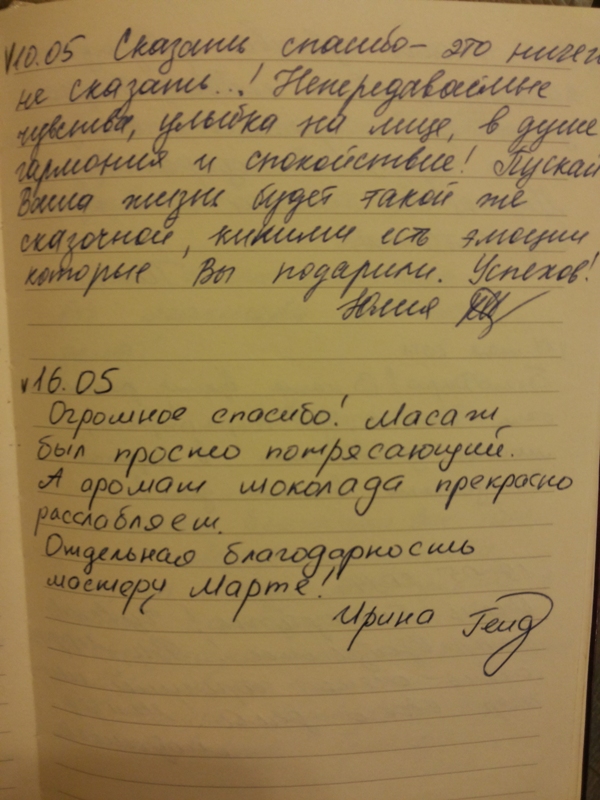 √10.05 Сказать спасибо – это ничего
не сказать...! Непередаваемые
чувства, улыбка на лице, в душе
гармония и спокойствие! Пускай
Ваша жизнь будет такой же
сказочной, какими есть эмоции
которые Вы подарили. Успехов!
Юлия
√16.05
Огромное спасибо! Масаж
был просто потрясающий.
А аромат шоколада прекрасно
расслабляет.
Отдельная благодарность
мастеру Марте!
Ирина